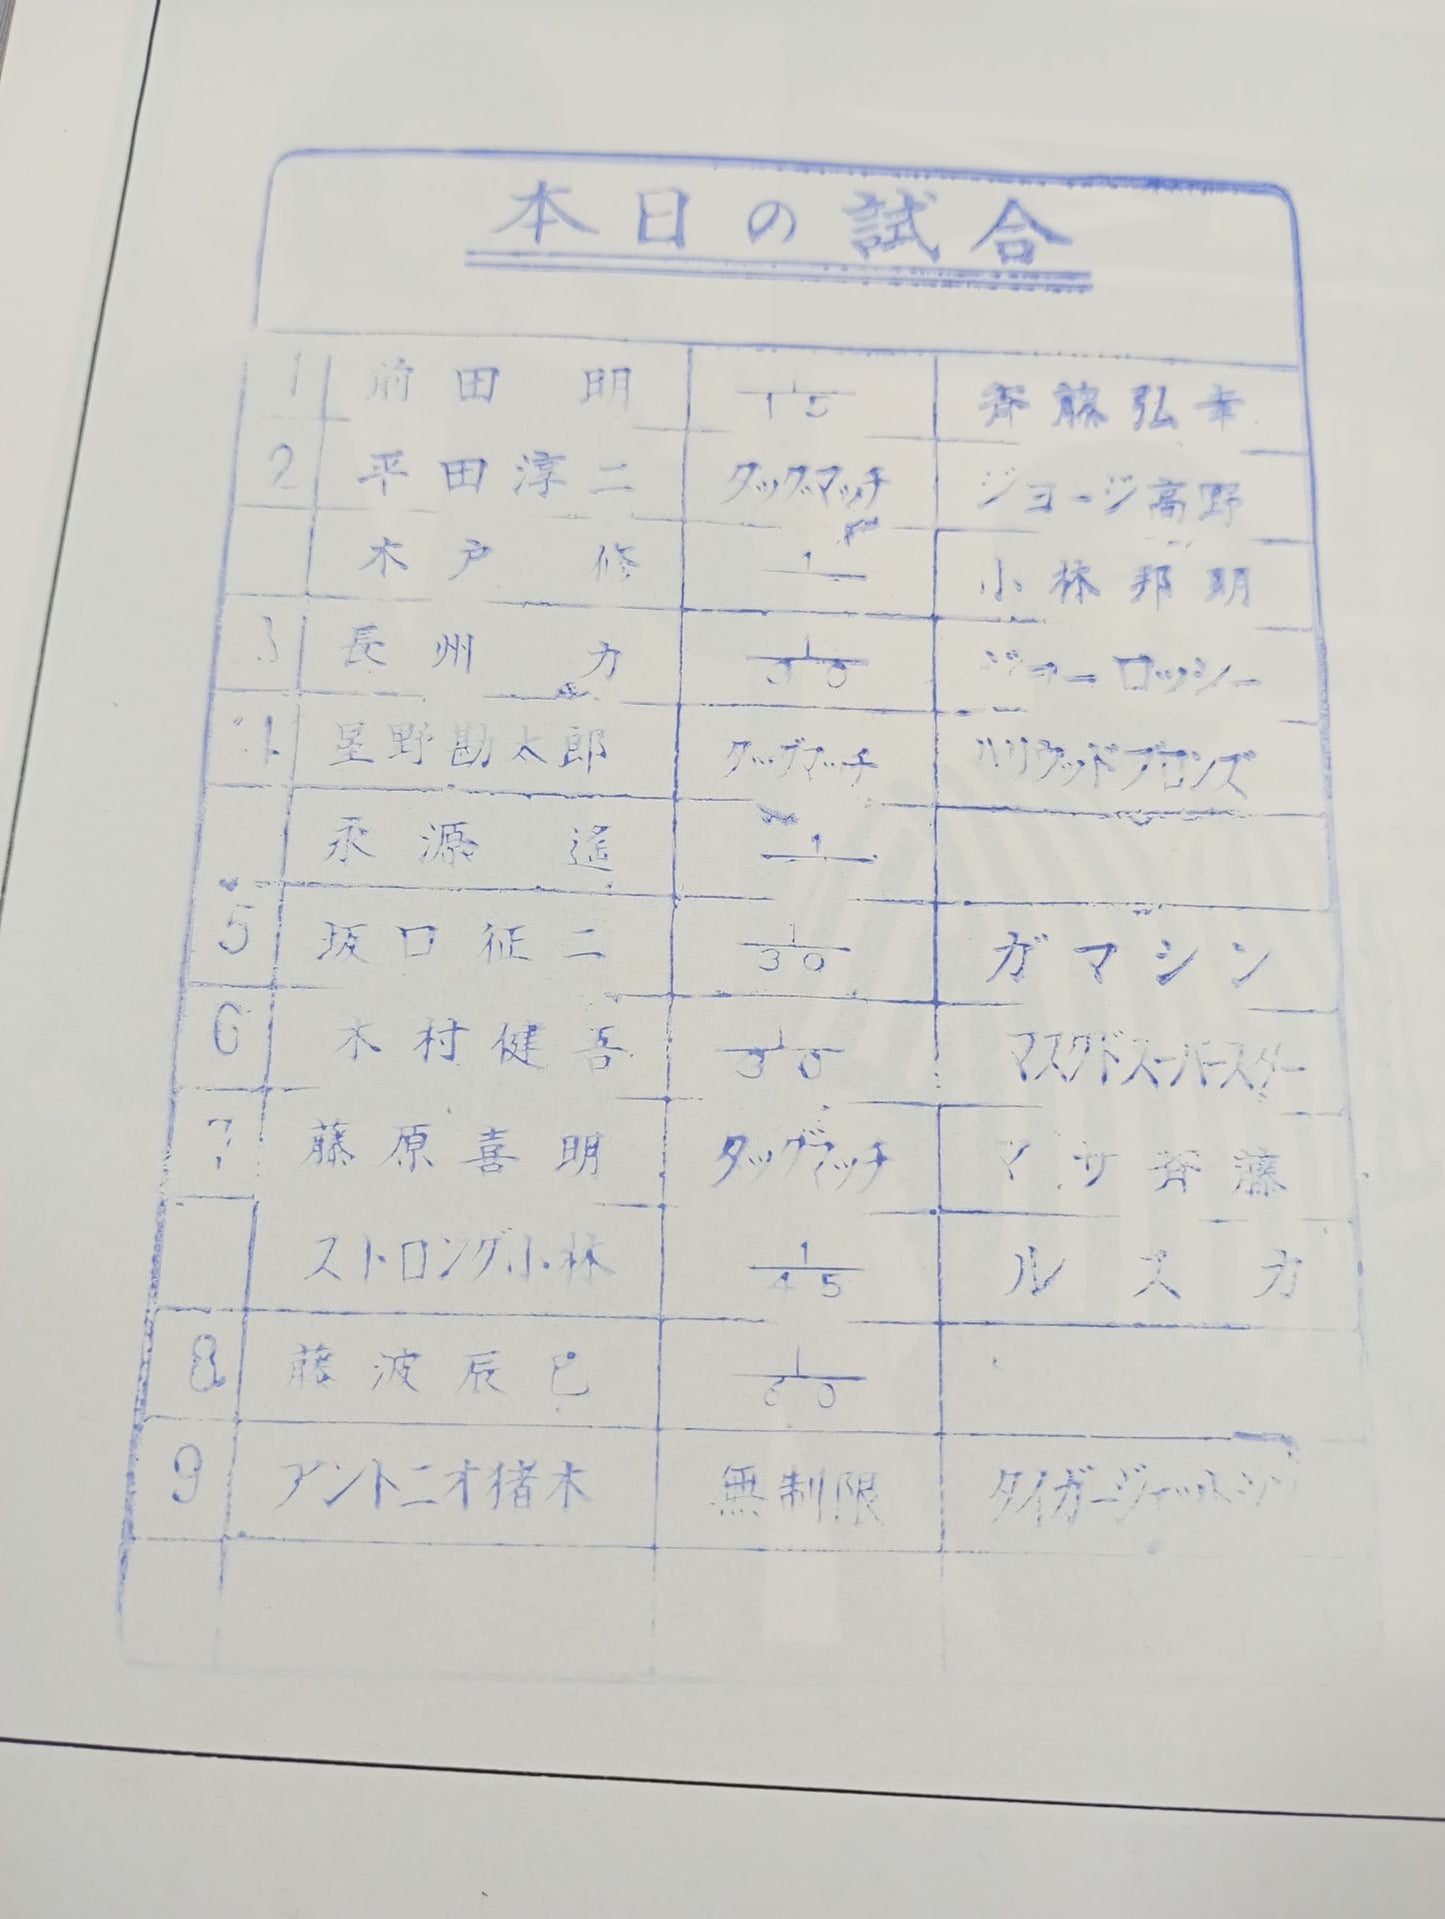 本日の試合
1 前田 明 1 15 斉藤弘幸
2 平田淳二 タッグマッチ ジョージ高野
木戸 修 1 小林邦明
3 長州 力 1 30 ジョーロッシー
4 星野勘太郎 タッグマッチ ハリウッドブロンズ
永源 遥 1
5 坂口征二 1 30 ガマシン
6 木村健吾 1 30 マスクドスーパースター
7 藤原喜明 タッグマッチ マサ斉藤
ストロング小林 1 45 ルスカ
8 藤波辰巳 1 60
9 アントニオ猪木 無制限 タイガージェットシン